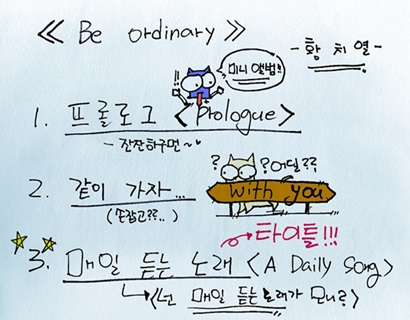 ≪ Be ordinary ≫
- 황 치 열 -
!! 미니 앨범!!
1. 프롤로그 < Prologue >
- 잔잔하구먼~♥
? ? 어딜??
2. 같이 가자... with you
(손잡고??..)
타이틀!!!
3. 매일 듣는 노래 < A Daily Song >
<넌 매일 듣는 노래가 모니?>